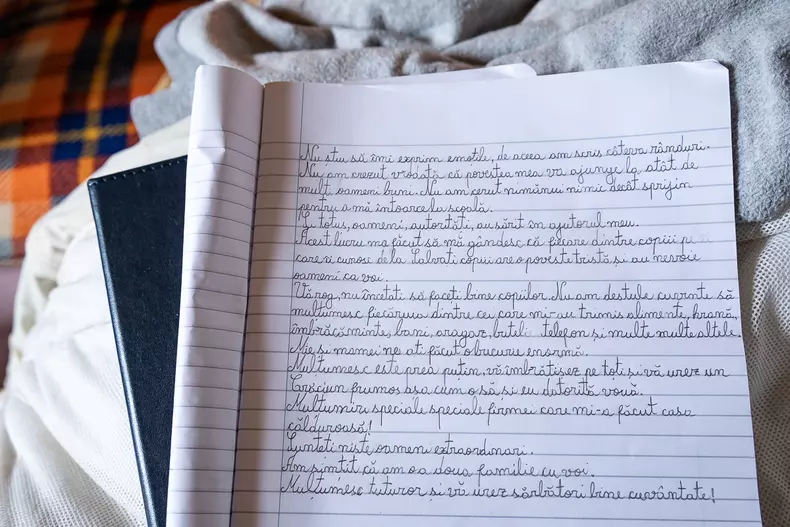 Nu știu să îmi exprim emoțile, de aceea am scris câteva rânduri.
Nu am crezut vreodată că povestea mea va ajunge la atât de
mulți oameni buni. Nu am cerut nimănui nimic decât sprijin
pentru a mă întoarce la școală.
Și totuș, oameni, autorități, au sărit în ajutorul meu.
Acest lucru ma făcut să mă gândesc că fiecare dintre copiii pe
care îi cunosc de la Salvati copiii are o poveste tristă și au nevoie
oameni ca voi.
Vă rog, nu încetați să faceți bine copiilor. Nu am destule cuvinte să
mulțumesc fiecăruia dintre cei care mi-au trimis alimente, hrană,
îmbrăcăminte, bani, aragaz, butelie telefon și multe multe altele.
Mie și mamei ne ati făcut o bucurie enormă.
Mulțumesc este prea puțin, vă îmbrățișez pe toți și vă urez un
Crăciun frumos asa cum o să și eu datorită vouă.
Mulțumiri speciale speciale firmei care mi-a făcut casa
călduroasă!
Sunteți niște oameni extraordinari.
Am simțit că am o a doua familie cu voi.
Mulțumesc tuturor și vă urez sărbători bine cuvântate!